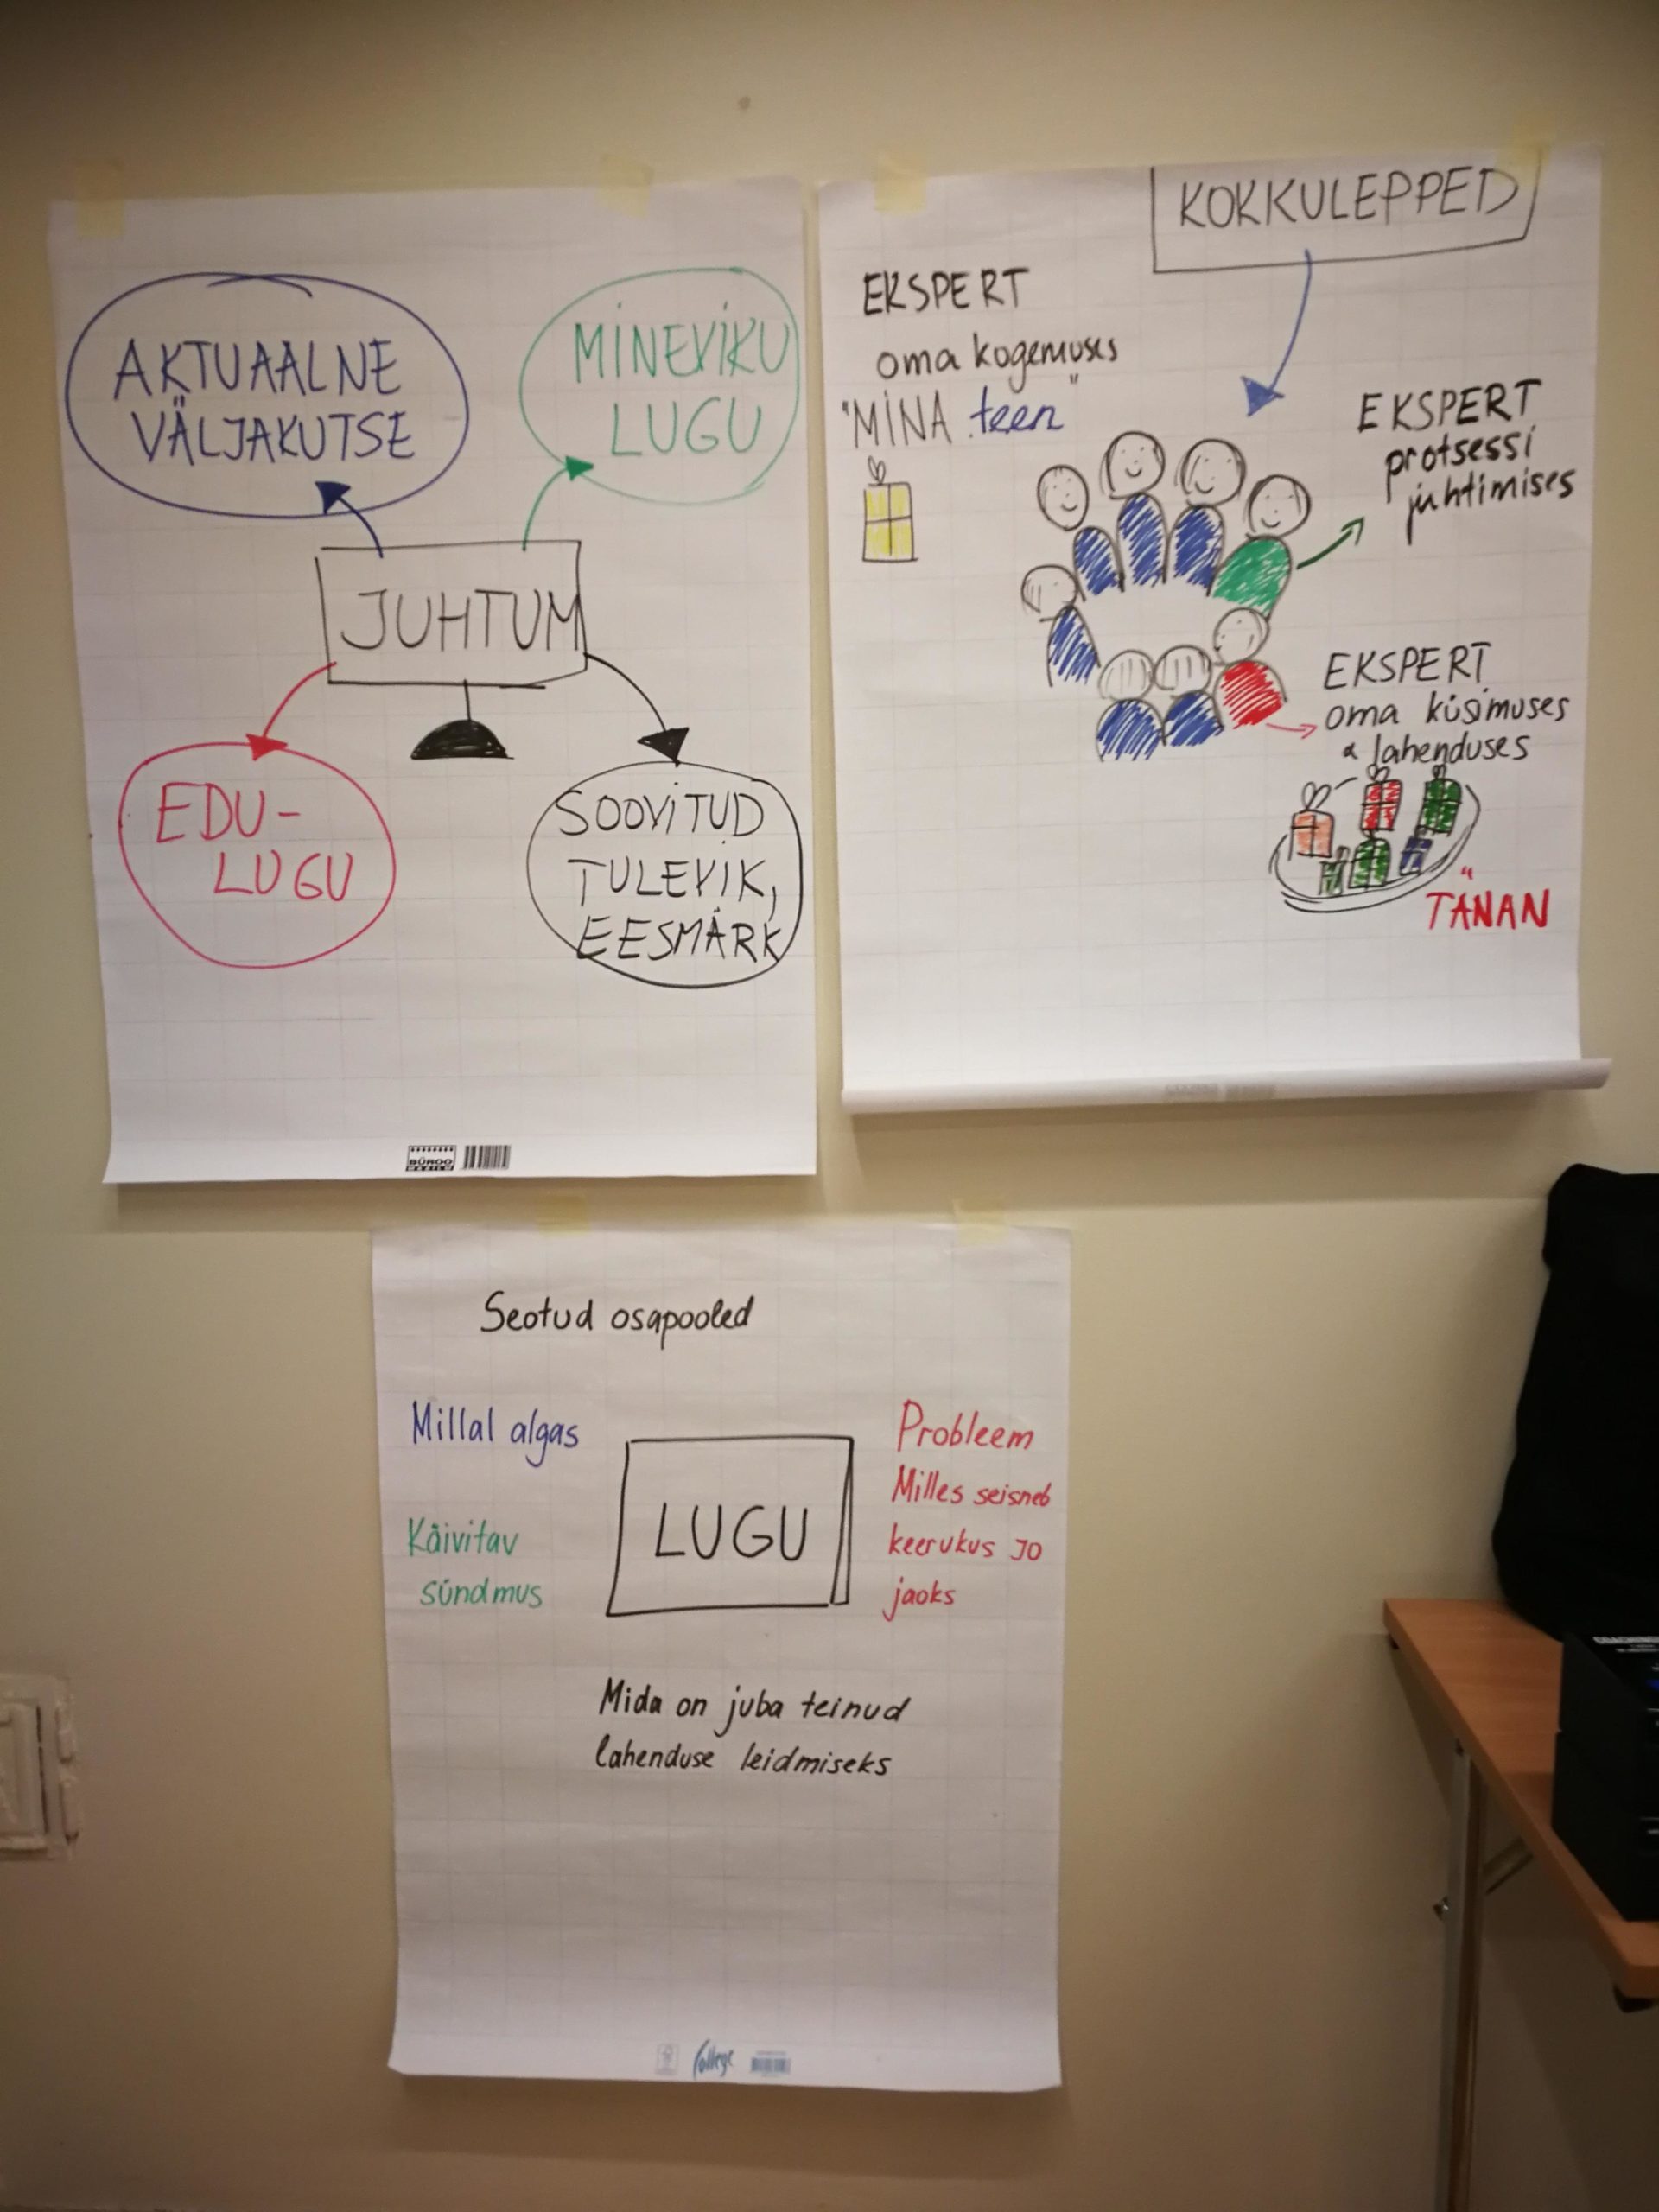 AKTUAALNE
VÄLJAKUTSE
MINEVIKU
LUGU
JUHTUM
EDU-
LUGU
SOOVITUD
TULEVIK,
EESMÄRK
BÜROO
KOKKULEPPED
EKSPERT
oma kogemuses
"MINA teen"
EKSPERT
protsessi
juhtimises
EKSPERT
oma küsimuses
& lahenduses
"
TÄNAN
Seotud osapooled
Millal algas
Käivitav
sündmus
LUGU
Probleem
Milles seisneb
keerukus JO
jaoks
Mida on juba teinud
lahenduse leidmiseks
College